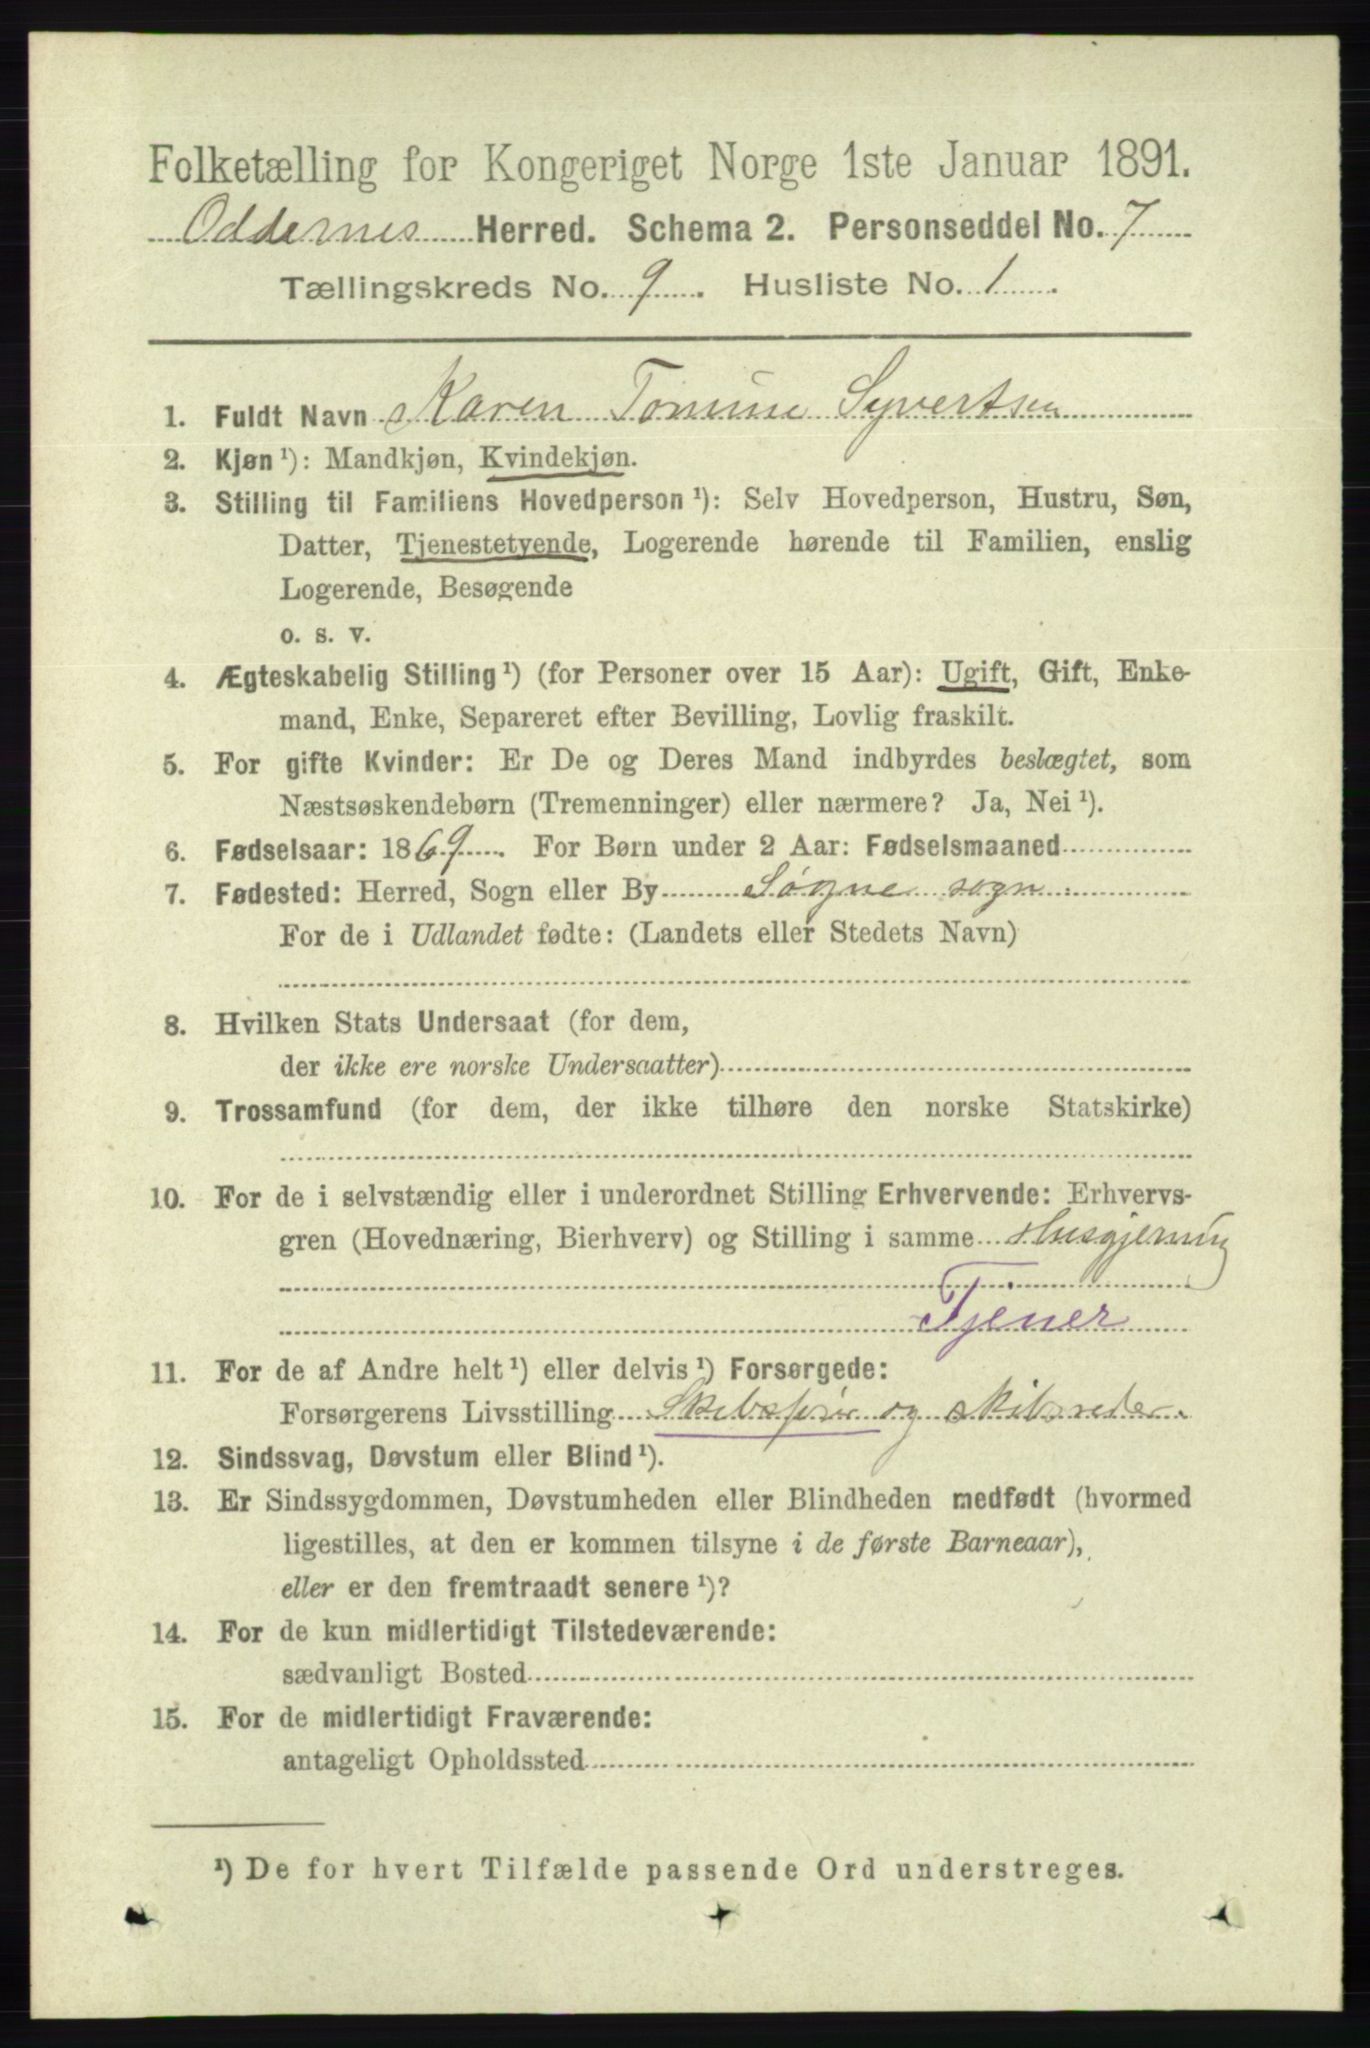 Folketælling for Kongeriget Norge 1ste Januar 1891.
Oddernes Herred. Schema 2. Personseddel No. 7
Tællingskreds No. 9. Husliste No. 1.
1. Fuldt Navn Karen Tomine Syvertsen
2. Kjøn ¹): Mandkjøn, Kvindekjøn.
3. Stilling til Familiens Hovedperson ¹): Selv Hovedperson, Hustru, Søn,
Datter, Tjenestetyende, Logerende hørende til Familien, enslig
Logerende, Besøgende
o. s. v.
4. Ægteskabelig Stilling ¹) (for Personer over 15 Aar): Ugift, Gift, Enke-
mand, Enke, Separeret efter Bevilling, Lovlig fraskilt.
5. For gifte Kvinder: Er De og Deres Mand indbyrdes beslægtet, som
Næstsøskendebørn (Tremenninger) eller nærmere? Ja, Nei ¹).
6. Fødselsaar: 1869. For Børn under 2 Aar: Fødselsmaaned
7. Fødested: Herred, Sogn eller By Søgne sogn
For de i Udlandet fødte: (Landets eller Stedets Navn)
8. Hvilken Stats Undersaat (for dem,
der ikke ere norske Undersaatter)
9. Trossamfund (for dem, der ikke tilhøre den norske Statskirke)
10. For de i selvstændig eller i underordnet Stilling Erhvervende: Erhvervs-
gren (Hovednæring, Bierhverv) og Stilling i samme Husgjerning
Tjener
11. For de af Andre helt ¹) eller delvis ¹) Forsørgede:
Forsørgerens Livsstilling Skibsfører og skibsreder.
12. Sindssvag, Døvstum eller Blind ¹).
13. Er Sindssygdommen, Døvstumheden eller Blindheden medfødt (hvormed
ligestilles, at den er kommen tilsyne i de første Barneaar),
eller er den fremtraadt senere ¹)?
14. For de kun midlertidigt Tilstedeværende:
sædvanligt Bosted
15. For de midlertidigt Fraværende:
antageligt Opholdssted
¹) De for hvert Tilfælde passende Ord understreges.